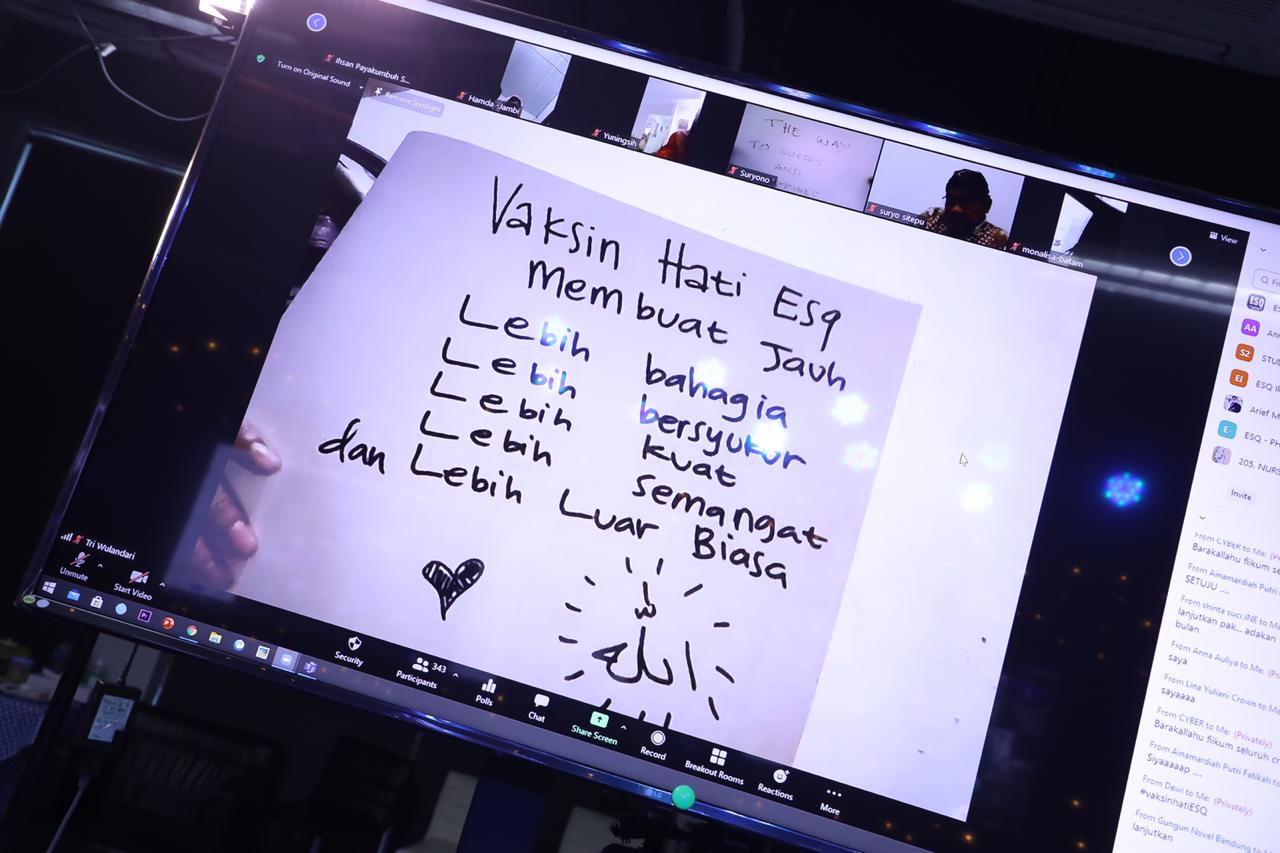 Ihsan Payakumbuh S...
Turn on Original Sound
Remove Spotlight
Hamda -Jambi
Yuningsih
THE WAY
TO SUCCES
AND
Suryono
suryo sitepu
monalisa-batam
View
Vaksin Hati Esq
membuat Jauh
Lebih bahagia
Lebih bersyukur
Lebih kuat
Lebih semangat
dan Lebih Luar Biasa
الله
Tri Wulandari
Unmute
Start Video
Security
343
Participants
Polls
Chat
Share Screen
Record
Breakout Rooms
Reactions
More
LG
ESQ
AA
S2 STU
EI ESQ
Arief M
E- ESQ - PH
205. NURS
Invite
From CYBER to Me: (Pr
Barakallahu fiikum se
From Ainamardiah Put
SETUJU ....
From shinta suci JNE to Me
lanjutkan pak... adakan
bulan
From Anna Auliya to Me: (Pr
saya
From Lina Yuliani Crown to Me
sayaaaa
From CYBER to Me: (Privately)
Barakallahu fiikum seluruh cr
From Ainamardiah Putri Fatikah to
Siyaaaaap ....
From Dewi to Me: (Privately)
#vaksinhatiESQ
From Gungun Novel Bandung to
lanjutkan